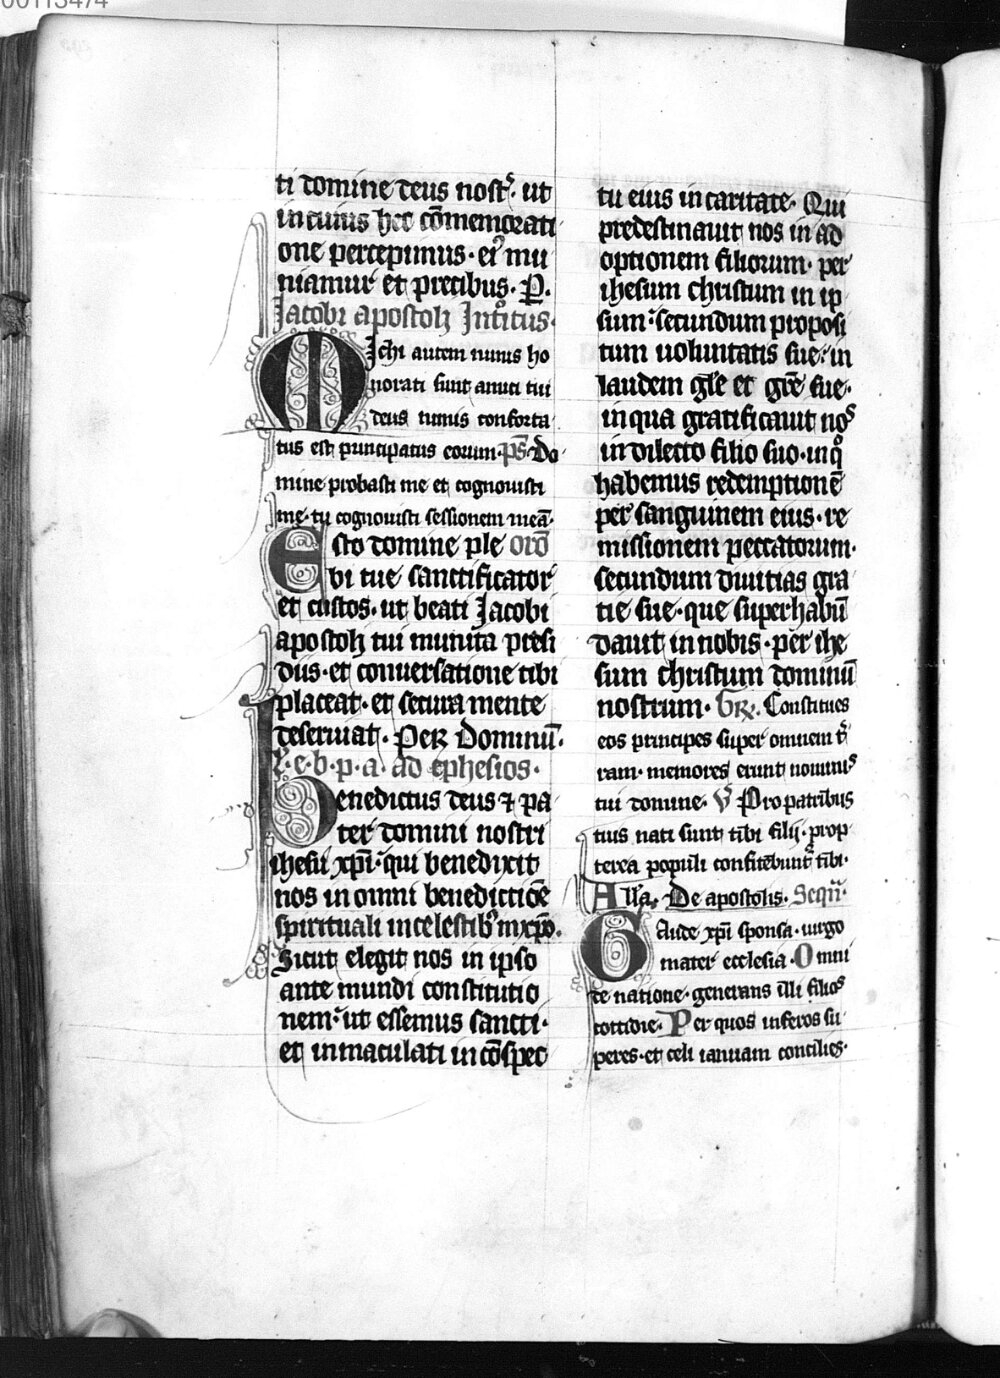 00113474
ti domine deus nostꝰ· ut
in cuius hec cōmemorati
one percepimus· eiꝰ mu
niamur et precibus· P.
Jacobi apostoli Introitus·
Michi autem nimis ho
norati sunt amici tui
deus nimis conforta
tus est principatus eorum· pš Do
mine probasti me et cognouisti
me· tu cognouisti sessionem meā·
Esto domine ple orō
bi tue sanctificator
et custos· ut beati Jacobi
apostoli tui munita presi
diis· et conuersatione tibi
placeat· et secura mente
deseruiat· Per Dominū·
L·e·b·p·a· ad ephesios·
Benedictus deus ⁊ pa
ter domini nostri
ihesu xp̄i· qui benedixit
nos in omni benedictiōe
spirituali in celestibꝰ in xp̄o·
Sicut elegit nos in ipso
ante mundi constitutio
nem· ut essemus sancti·
et inmaculati in cōspec
tu eius in caritate· Qui
predestinauit nos in ad
optionem filiorum· per
ihesum christum in ip
sum· secundum proposi
tum uoluntatis sue· in
laudem gl̄e et gr̄e sue·
in qua gratificauit noꝰ
in dilecto filio suo· in qͦ
habemus redemptionē
per sanguinem eius· re
missionem peccatorum·
secundum diuitias gra
tie sue· que superhabū
dauit in nobis· per ihe
sum christum dominū
nostrum· Gr̄. Constitues
eos principes super omnem t̄
ram· memores erunt nominiꝰ
tui domine· V̄ Pro patribus
tuis nati sunt tibi filij· prop
terea populi confitebunt̄ tibi·
All'a· De apostolis· Seqū·
Gaude xp̄i sponsa· uirgo
mater ecclesia· Omni
de natione· generans illi filios
cottidie· Per quos inferos su
peres· et celi ianuam conciliēs·